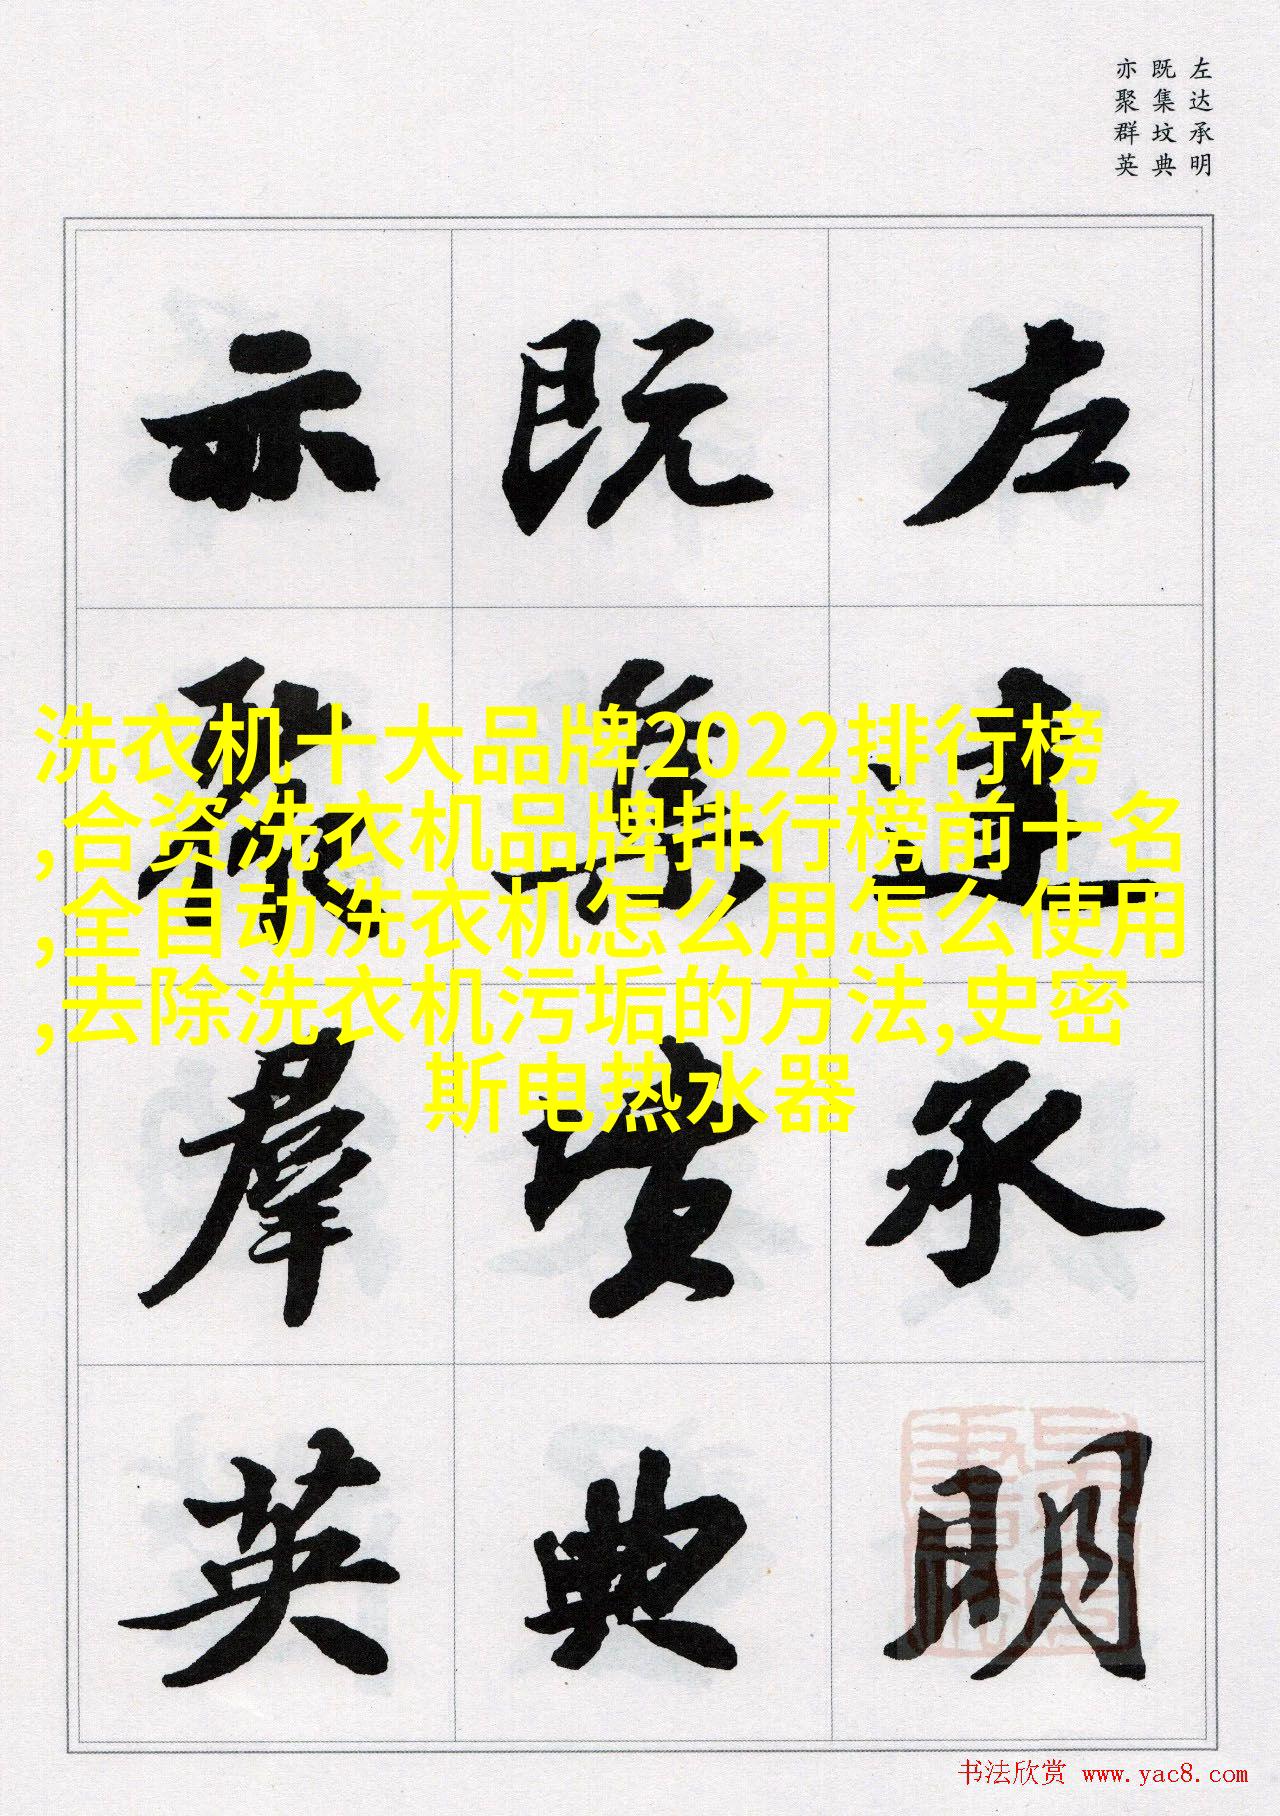 左达承明
既集坟典
亦聚群英
左達承明
既集墳典
亦聚羣英
洗衣机十大品牌2022排行榜
,合资洗衣机品牌排行榜前十名
,全自动洗衣机怎么用怎么使用
,去除洗衣机污垢的方法,史密
斯电热水器
书法欣赏 www.yac8.com